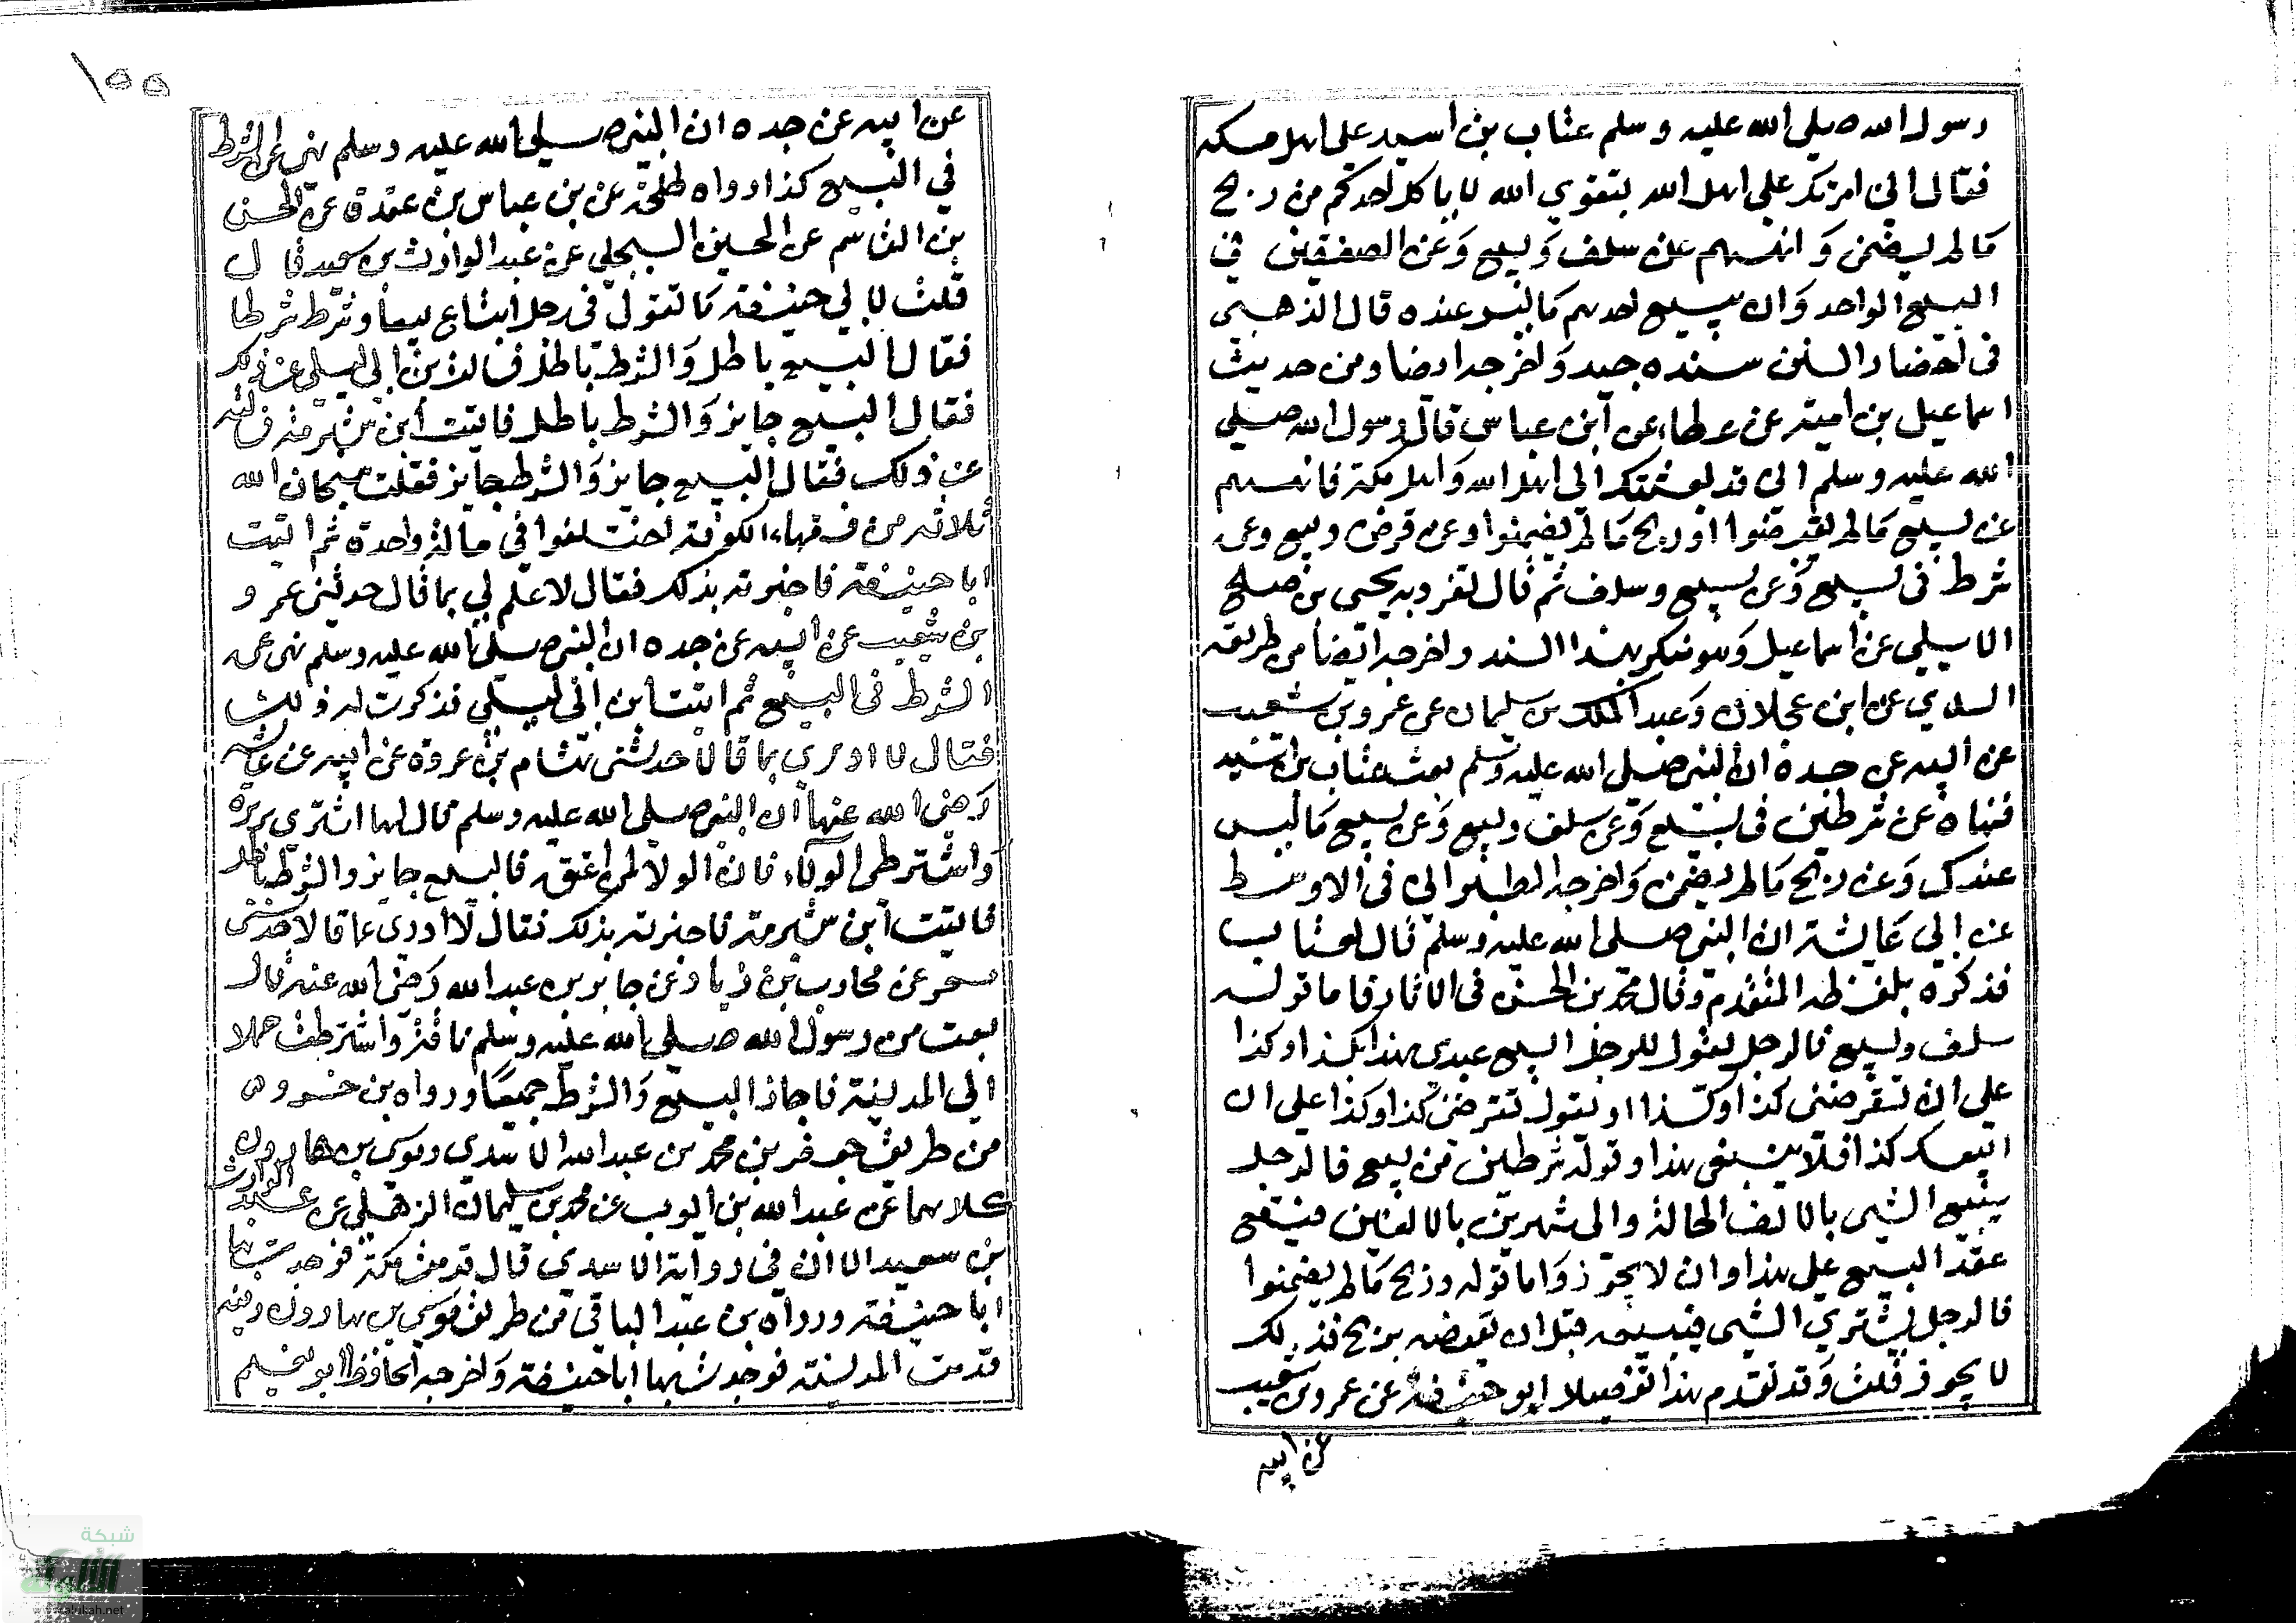 رسول الله صلى الله عليه وسلم عتاب بن اسيد على اهل مكة
فقال اني امرتك على اهل الله بتقوي الله لا ياكل احدكم من ربح
مالم يضمن وانههم عن سلف وبيع وعن الصفقتين في
البيع الواحد وان يبيع احدهم ماليس عنده قال الذهبي
في اختصار السنن سنده جيد واخرجه ايضا من حديث
اسماعيل بن امية عن عطاء عن ابن عباس قال رسول الله صلى
الله عليه وسلم اني قد بعثتك الي اهل الله واهل مكة فانههم
عن بيع مالم يقبضوا او ربح مالم يضمنوا وعن قرض وبيع وعن
شرط في بيع وعن بيع وسلف ثم قال تفرد به يحيى بن صالح
الايلي عن اسماعيل وهو منكر بهذا السند واخرجه ايضا من طريق
السدي عن ابن عجلان وعبد الملك بن سليمان عن عمرو بن شعيب
عن ابيه عن جده ان النبي صلى الله عليه وسلم بعث عتاب بن اسيد
فنهاه عن شرطين في بيع وعن سلف وبيع وعن بيع ماليس
عندك وعن ربح مالم يضمن واخرجه الطبراني في الاوسط
عن ابي عايشة ان النبي صلى الله عليه وسلم قال لعتاب
فذكره بلفظه المتقدم وقال محمد بن الحسن في الاثار فاما قوله
سلف وبيع فالرجل يقول للرجل ابيع عبدي هذا بكذا وكذا
على ان تقرضني كذا وكذا او يقول تقرضني كذا وكذا على ان
ابيعك كذا فلا ينبغي هذا وقوله شرطين في بيع فالرجل
يبيع الشي بالالف الحالة والى شهرين بالالفين فيقع
عقد البيع على هذا وان لا يجوز واما قوله وربح مالم يضمنوا
فالرجل يشتري الشي فيبيعه قبل ان يقبضه بربح فذلك
لا يجوز قلت وقد تقدم هذا تفصيلا ابو حنيفة عن عمرو بن شعيب
عن ابيه
١٥٥
عن ابيه عن جده ان النبي صلى الله عليه وسلم نهى عن الشرط
في البيع كذا رواه طلحة عن بن عباس بن عقدة عن الحسن
بن القاسم عن الحسين البجلي عن عبد الوارث بن سعيد قال
قلت لابي حنيفة ما تقول في رجل ابتاع بيعا وشرط شرطا
فقال البيع باطل والشرط باطل فسالت بن ابي ليلي عن ذلك
فقال البيع جايز والشرط باطل فاتيت ابن شبرمة فسالته
عن ذلك فقال البيع جايز والشرط جايز فقلت سبحان الله
ثلاثه من فقهاء الكوفة اختلفوا في مسالة واحدة ثم اتيت
ابا حنيفة فاخبرته بذلك فقال لا علم لي بما قال حدثني عمرو
بن شعيب عن ابيه عن جده ان النبي صلى الله عليه وسلم نهى عن
الشرط في البيع ثم اتيت ابن ابي ليلي فذكرت له ذلك
فقال لا ادري بما قالا حدثني هشام بن عروة عن ابيه عن عايشه
رضي الله عنها ان النبي صلى الله عليه وسلم قال لها اشتري بريره
واشترطي الولاء فان الولا لمن اعتق فالبيع جايز والشرط باطل
فاتيت ابن شبرمة فاخبرته بذلك فقال لا ادري بما قالا حدثني
مسعر عن محارب بن زياد عن جابر بن عبد الله رضي الله عنه قال
بعت من رسول الله صلى الله عليه وسلم ناقة واشترطت حملا
الي المدينة فاجاز البيع والشرط جميعا ورواه بن خسرو
من طريق جعفر بن محمد بن عبد الله الاسدي وموسى بن هارون
كلاهما عن عبد الله بن ايوب عن محمد بن سليمان الذهلي عن عبد الوارث
بن سعيد الا ان في رواية الاسدي قال قدمت مكة فوجدت بها
ابا حنيفة ورواه بن عبد الباقي من طريق موسى بن هارون وفيه
قدمت المدينة فوجدت بها ابا حنيفة واخرجه الحافظ ابو نعيم
شبكة
الألوكة
www.alukah.net